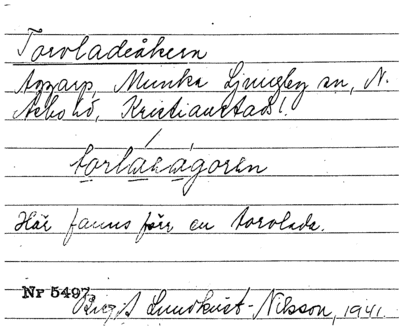 Torvladeåkern
Aggarp, Munka Ljungby sn, N.
Åsbo hd, Kristianstads l.
torlaaågoren
Här fanns förr en torvlada.
Nr 5497
Birgit Lundkvist-Nilsson, 1941.